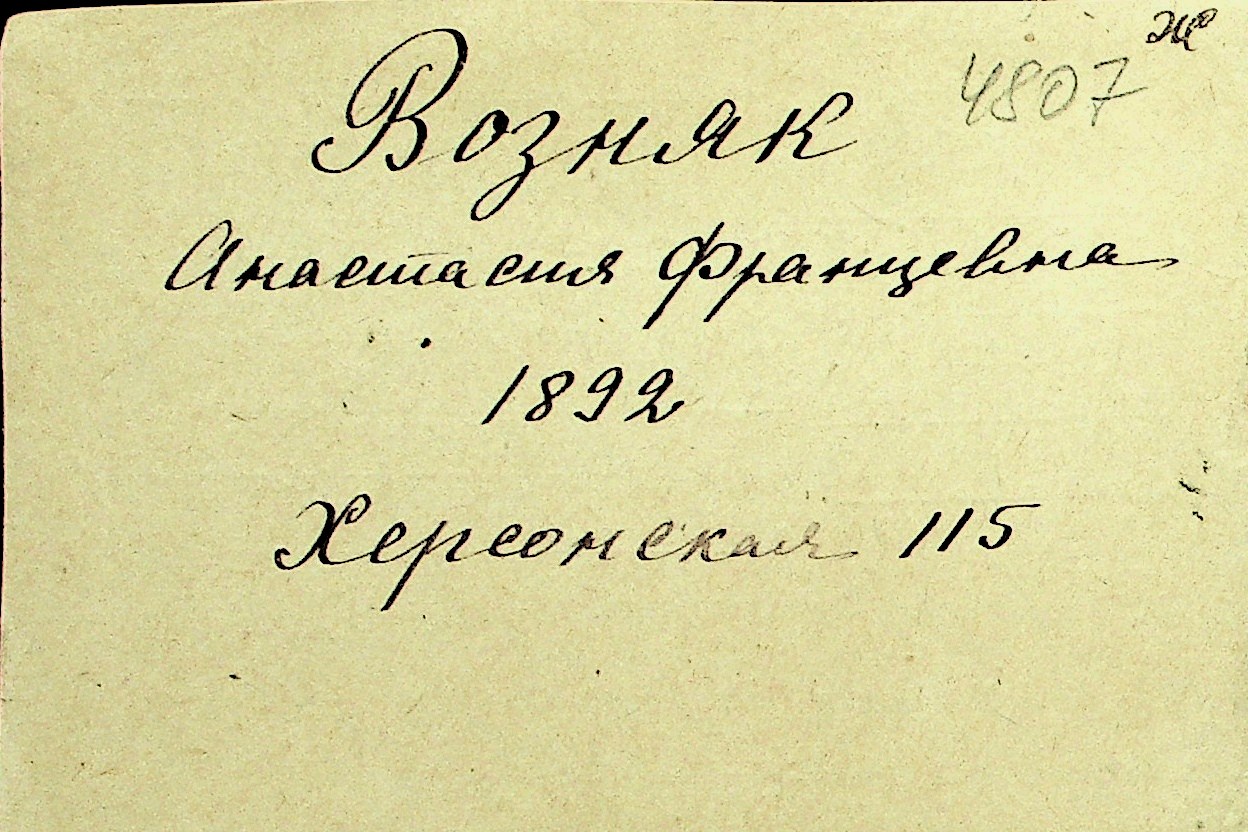 ж
4807
Возняк
Анастасия Францевна
1892
Херсонская 115